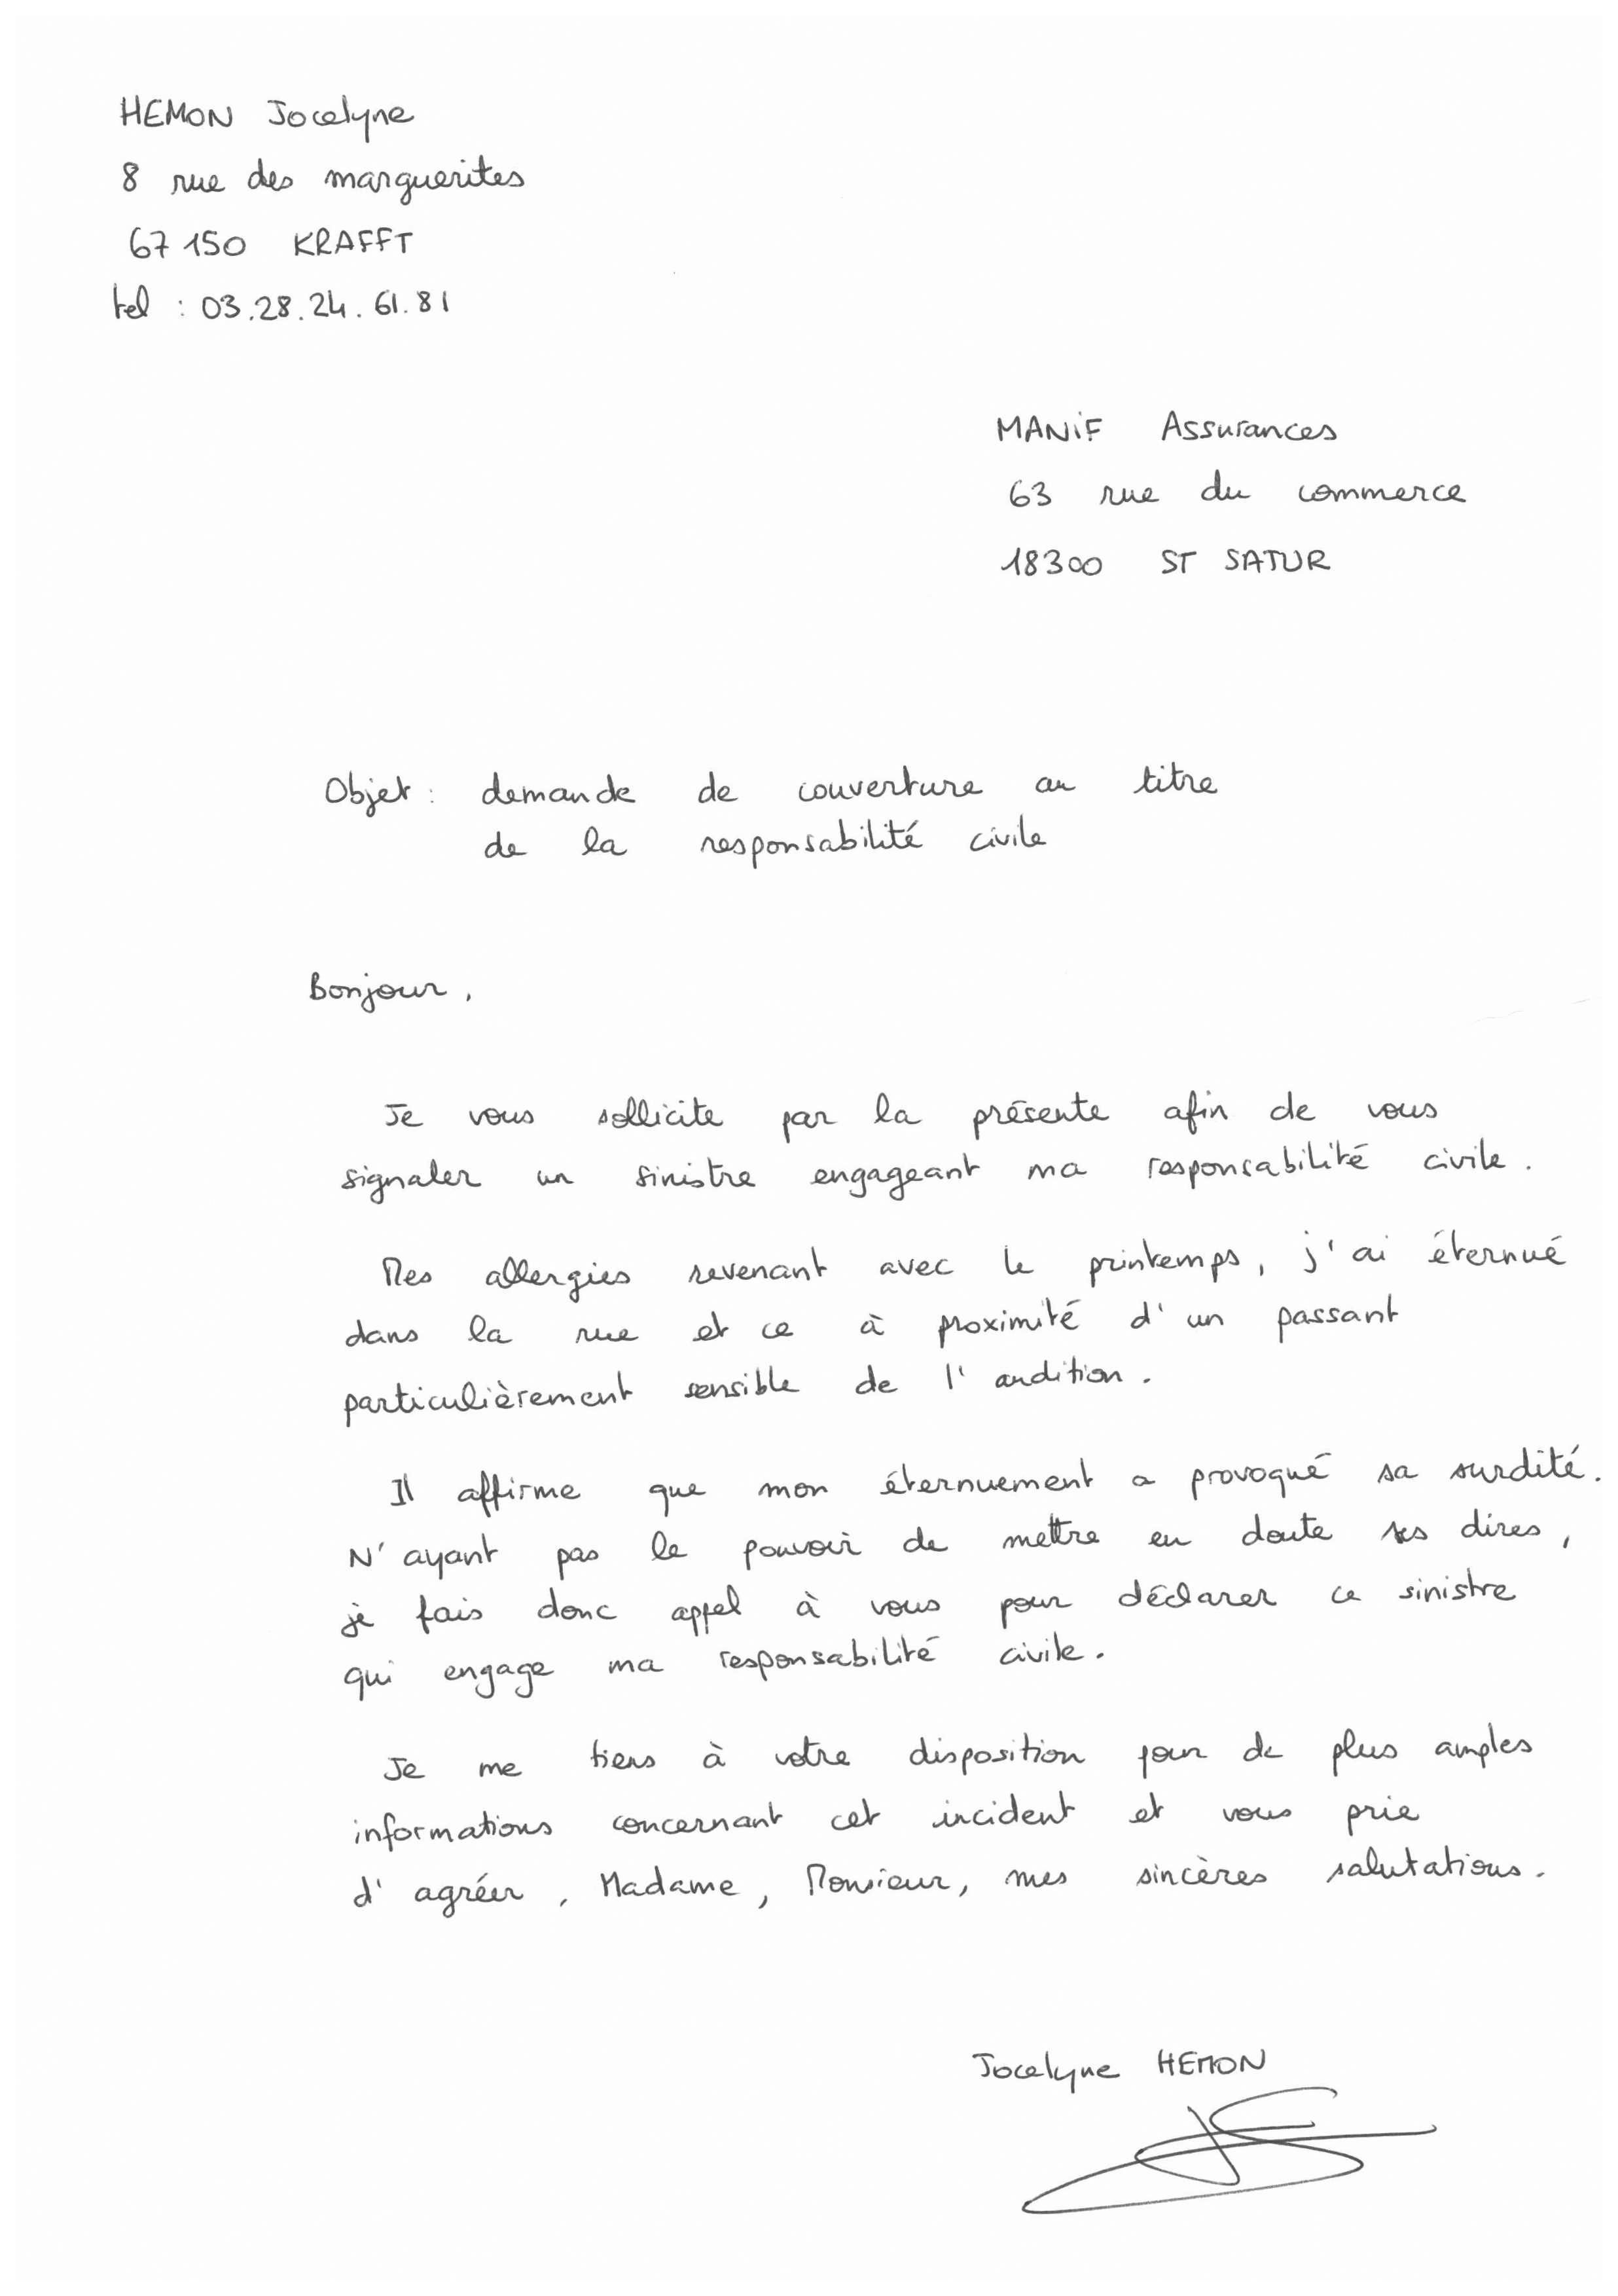 HEMON Jocelyne
8 rue des marguerites
67 150 KRAFFT
tel : 03.28.24.61.81
MANiF Assurances
63 rue du commerce
18300 ST SATUR
Objet : demande de couverture au titre
de la responsabilité civile
Bonjour,
Je vous sollicite par la présente afin de vous
signaler un sinistre engageant ma responsabilité civile.
Mes allergies revenant avec le printemps, j'ai éternué
dans la rue et ce à proximité d'un passant
particulièrement sensible de l'audition.
Il affirme que mon éternuement a provoqué sa surdité.
N'ayant pas le pouvoir de mettre en doute ses dires,
je fais donc appel à vous pour déclarer ce sinistre
qui engage ma responsabilité civile.
Je me tiens à votre disposition pour de plus amples
informations concernant cet incident et vous prie
d'agréer, Madame, Monsieur, mes sincères salutations.
Jocelyne HEMON